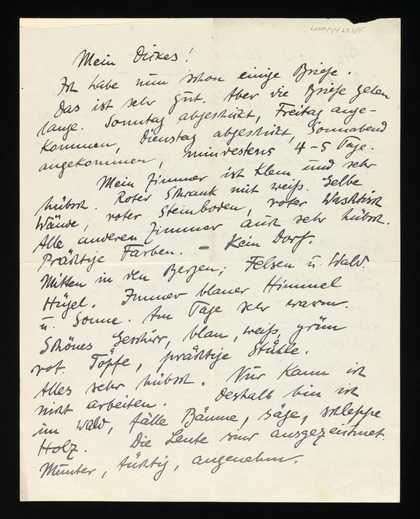 Mein Dickes!
Ich habe nun schon einige Briefe.
Das ist sehr gut. Aber die Briefe gehen
lange. Sonntag abgeschickt, Freitag ange-
kommen, Dienstag abgeschickt, Sonnabend
angekommen, mindestens 4-5 Tage.
Mein Zimmer ist klein und sehr
hübsch. Roter Schrank mit weiß. Gelbe
Wände, roter Steinboden, roter Waschtisch
Alle anderen Zimmer auch sehr hübsch.
Prächtige Farben. – Kein Dorf.
Mitten in den Bergen; Felsen u. Wald
Hügel. Immer blauer Himmel
u. Sonne. Am Tage sehr warm.
Schönes Geschirr, blau, weiß, grün
rot. Töpfe, prächtige Stühle.
Alles sehr hübsch. Nur kann ich
nicht arbeiten. Deshalb bin ich
im Wald, fälle Bäume, säge, schleppe
Holz. Die Leute sind ausgezeichnet.
Munter, tüchtig, angenehm.